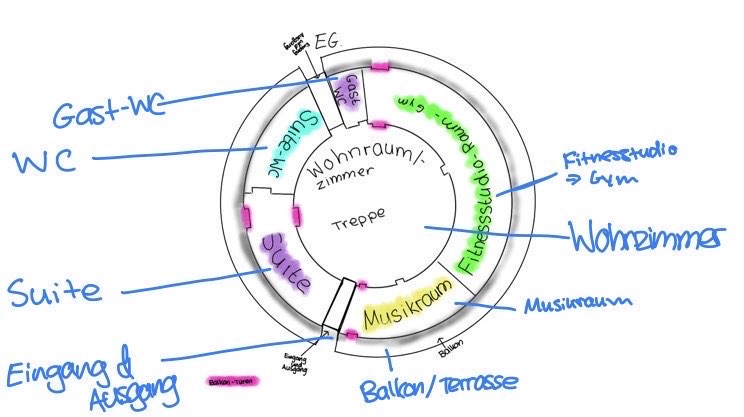 EG.
Gast-WC
Gast
WC
Fitnessstudio-Raum-Gym
WC
Suite-WC
Wohnraum/-
zimmer
Fitnesstudio
⇒ Gym
Treppe
Wohnzimmer
Suite
Suite
Musikraum
Musikraum
Eingang &
Ausgang
Eingang
und
Ausgang
Balkon-Türen
Balkon
Balkon/Terrasse